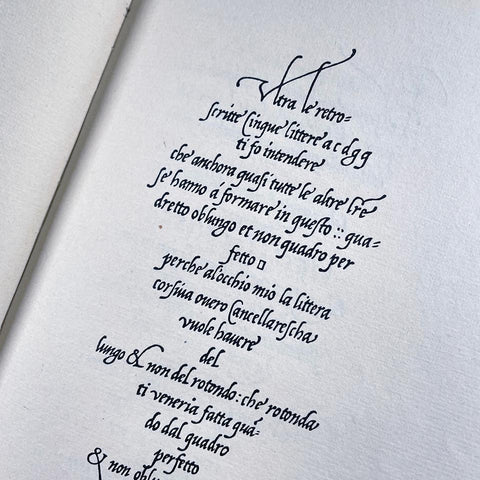 Vltra le retro-
scritte Cinque littere a c d g q
ti fo intendere
che anchora quasi tutte le altre lrẽ
se hanno á formare in questo :: qua-
dretto oblungo et non quadro per
fetto □
perche alocchio mio la littera
corsiua ouero Cancellarescha
vuole hauere
del
lungo & non del rotondo: che rotonda
ti veneria fatta quã-
do dal quadro
perfetto
& non oblungo